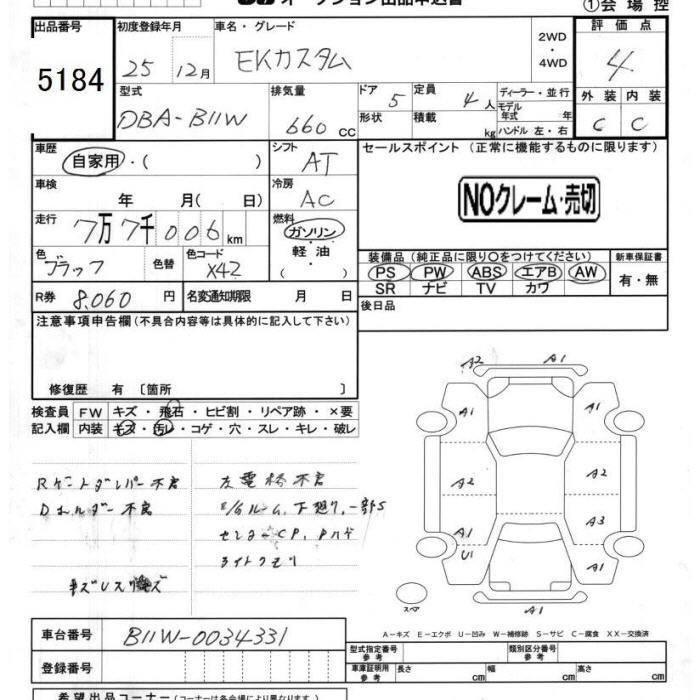 オークション出品申込書 ①会場控
出品番号 初度登録年月 車名・グレード 2WD・4WD 評価点
5184 25 12月 EKカスタム 4
型式 排気量 ドア 定員 ディーラー・並行 外装 内装
DBA-B11W 660 CC 5 4人 モデル年式 年 C C
形状 積載 kg ハンドル 左・右
車歴 シフト セールスポイント(正常に機能するものに限ります)
自家用・( ) AT
車検 冷房 NOクレーム・売切
年 月( 日) AC
走行 燃料
7万7千006km ガソリン
軽油
装備品(純正品に限り○をつけてください) 新車保証書
色 色替 色コード PS PW ABS エアB AW 有・無
ブラック X42 SR ナビ TV カワ
R券 8,060 円 名変通知期限 月 日 後日品
注意事項申告欄(不具合内容等は具体的に記入して下さい)
修復歴 有 〔箇所 〕
検査員 FW キズ・飛石・ヒビ割・リペア跡・×要
記入欄 内装 キズ・汚レ・コゲ・穴・スレ・キレ・破レ
Rゲートダンパー不良
Dホルダー不良
E/Gルーム、下廻り、一部S
A2 A1
A1 A1
A2 A2
A1 A3
U1
A1
A1
スペア
A-キズ E-エクボ U-凹み W-補修跡 S-サビ C-腐食 XX-交換済
車台番号 B11W-0034331
登録番号
型式指定番号 参考 類別区分番号 参考
車庫証明用 参考 長さ cm 幅 cm 高さ cm
希望出品コーナー(コーナーは各会場により異なります)